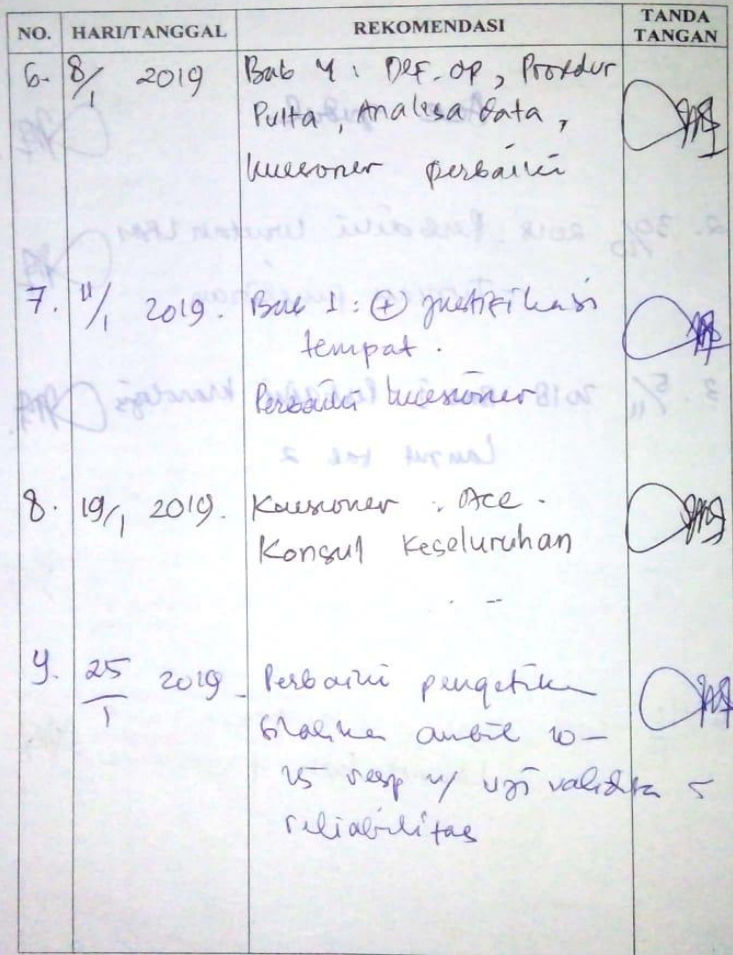 NO. HARI/TANGGAL REKOMENDASI TANDA TANGAN
6. 8/1 2019 Bab 4 : Def. Op, Prosedur
Pulta, Analisa data,
kuesoner perbaiki
7. 11/1 2019. Bab 1 : (+) justifikasi
tempat.
Perbaiki kuesioner
8. 19/1 2019. Kuesioner : Acc.
Konsul Keseluruhan
9. 25/1 2019 - Perbaiki pengetikan
silahkan ambil 20-
25 resp u/ uji validitas
reliabilitas